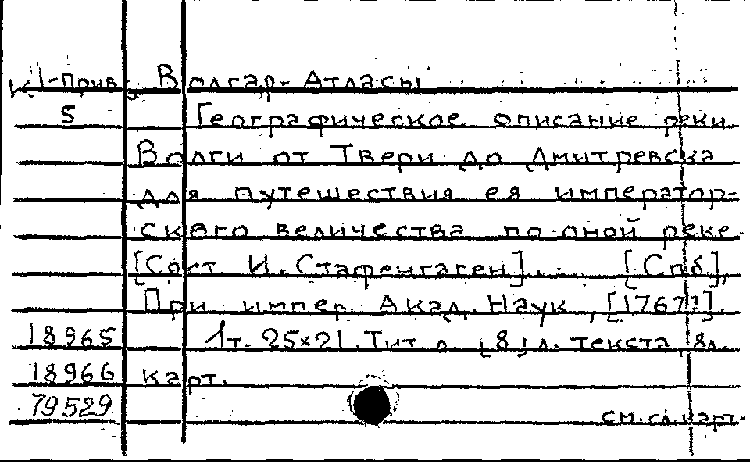 К I-прив. Волгар-Атласы
5 Географическое описание реки
Волги от Твери до Дмитревска
для путешествия ея император-
скаго величества по оной реке
[Сост И. Стафенгаген]. [Спб],
При импер. Акад. Наук, [1767].
18965 1т. 25×21. Тит. л. [8] л. текста, 8л.
18966 карт.
79529 см. сл. карт.